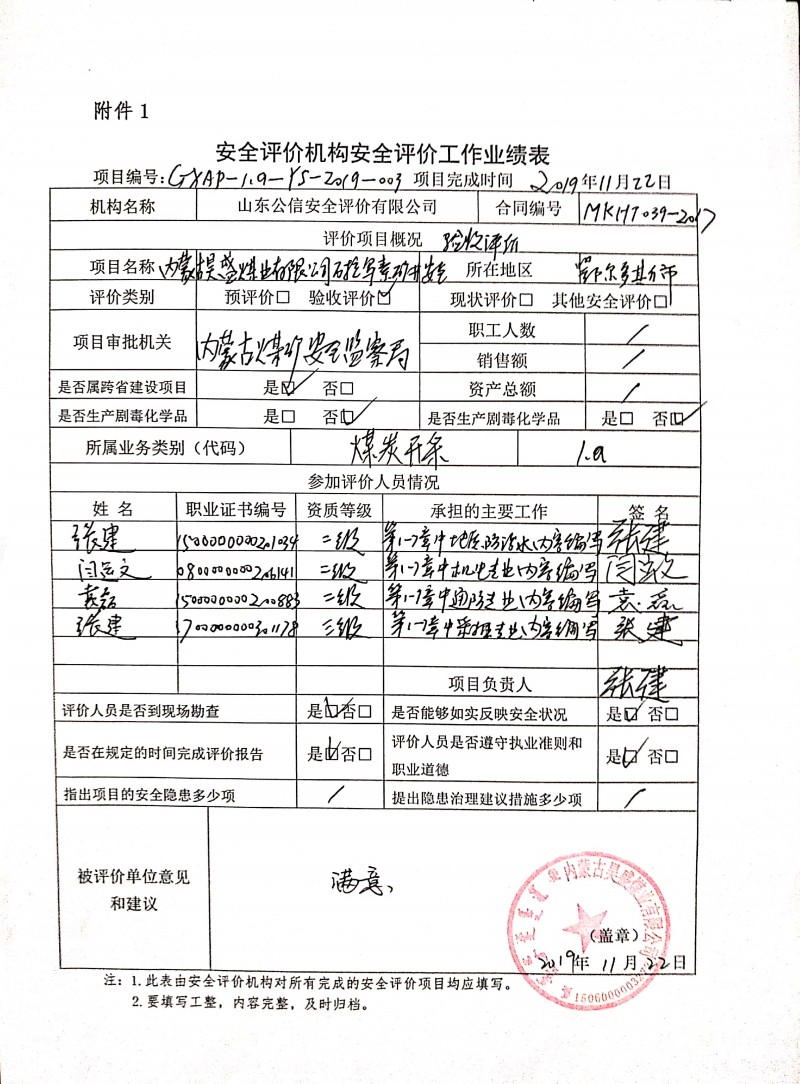 附件1
安全评价机构安全评价工作业绩表
项目编号:GXAP-1.a-YS-2019-003 项目完成时间 2019年11月22日
机构名称 山东公信安全评价有限公司 合同编号 MKHT039-2017
评价项目概况 验收评价
项目名称 内蒙古昊盛煤业有限公司石拉乌素矿井安全 所在地区 鄂尔多斯市
评价类别 预评价□ 验收评价☑ 现状评价□ 其他安全评价□
项目审批机关 内蒙古煤矿安全监察局 职工人数 /
销售额 /
资产总额 /
是否属跨省建设项目 是☑ 否□
是否生产剧毒化学品 是□ 否☑ 是否生产剧毒化学品 是□ 否☑
所属业务类别(代码) 煤炭开采 1.a
参加评价人员情况
姓 名 职业证书编号 资质等级 承担的主要工作 签 名
张建 1500000000201034 二级 第1-7章中地质防治水内容编写 张建
闫运文 二级 第1-7章中机电专业内容编写
袁磊 1500000000200883 二级 第1-7章中通防专业内容编写 袁磊
张建 1700000000301178 三级 第1-7章中采掘专业内容编写 张建
项目负责人 张建
评价人员是否到现场勘查 是☑否□ 是否能够如实反映安全状况 是☑ 否□
是否在规定的时间完成评价报告 是☑否□ 评价人员是否遵守执业准则和
职业道德 是☑ 否□
指出项目的安全隐患多少项 / 提出隐患治理建议措施多少项 /
被评价单位意见
和建议
满意、
内蒙古昊盛煤业有限公司
(盖章)
2019年 11月22日
注:1.此表由安全评价机构对所有完成的安全评价项目均应填写。
2.要填写工整,内容完整,及时归档。